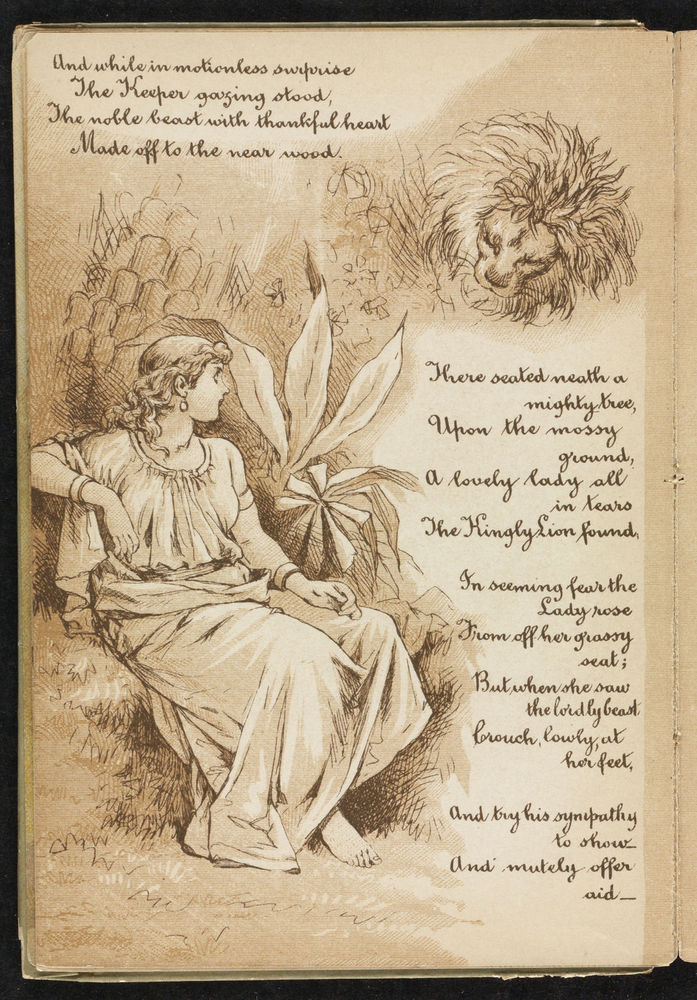 And while in motionless surprise
The Keeper gazing stood,
The noble beast with thankful heart
Made off to the near wood.
There seated neath a
mighty tree,
Upon the mossy
ground,
A lovely lady all
in tears
The Kingly Lion found,
In seeming fear the
Lady rose
From off her grassy
seat;
But when she saw
the lordly beast
Crouch, lowly, at
her feet,
And try his sympathy
to show
And mutely offer
aid—